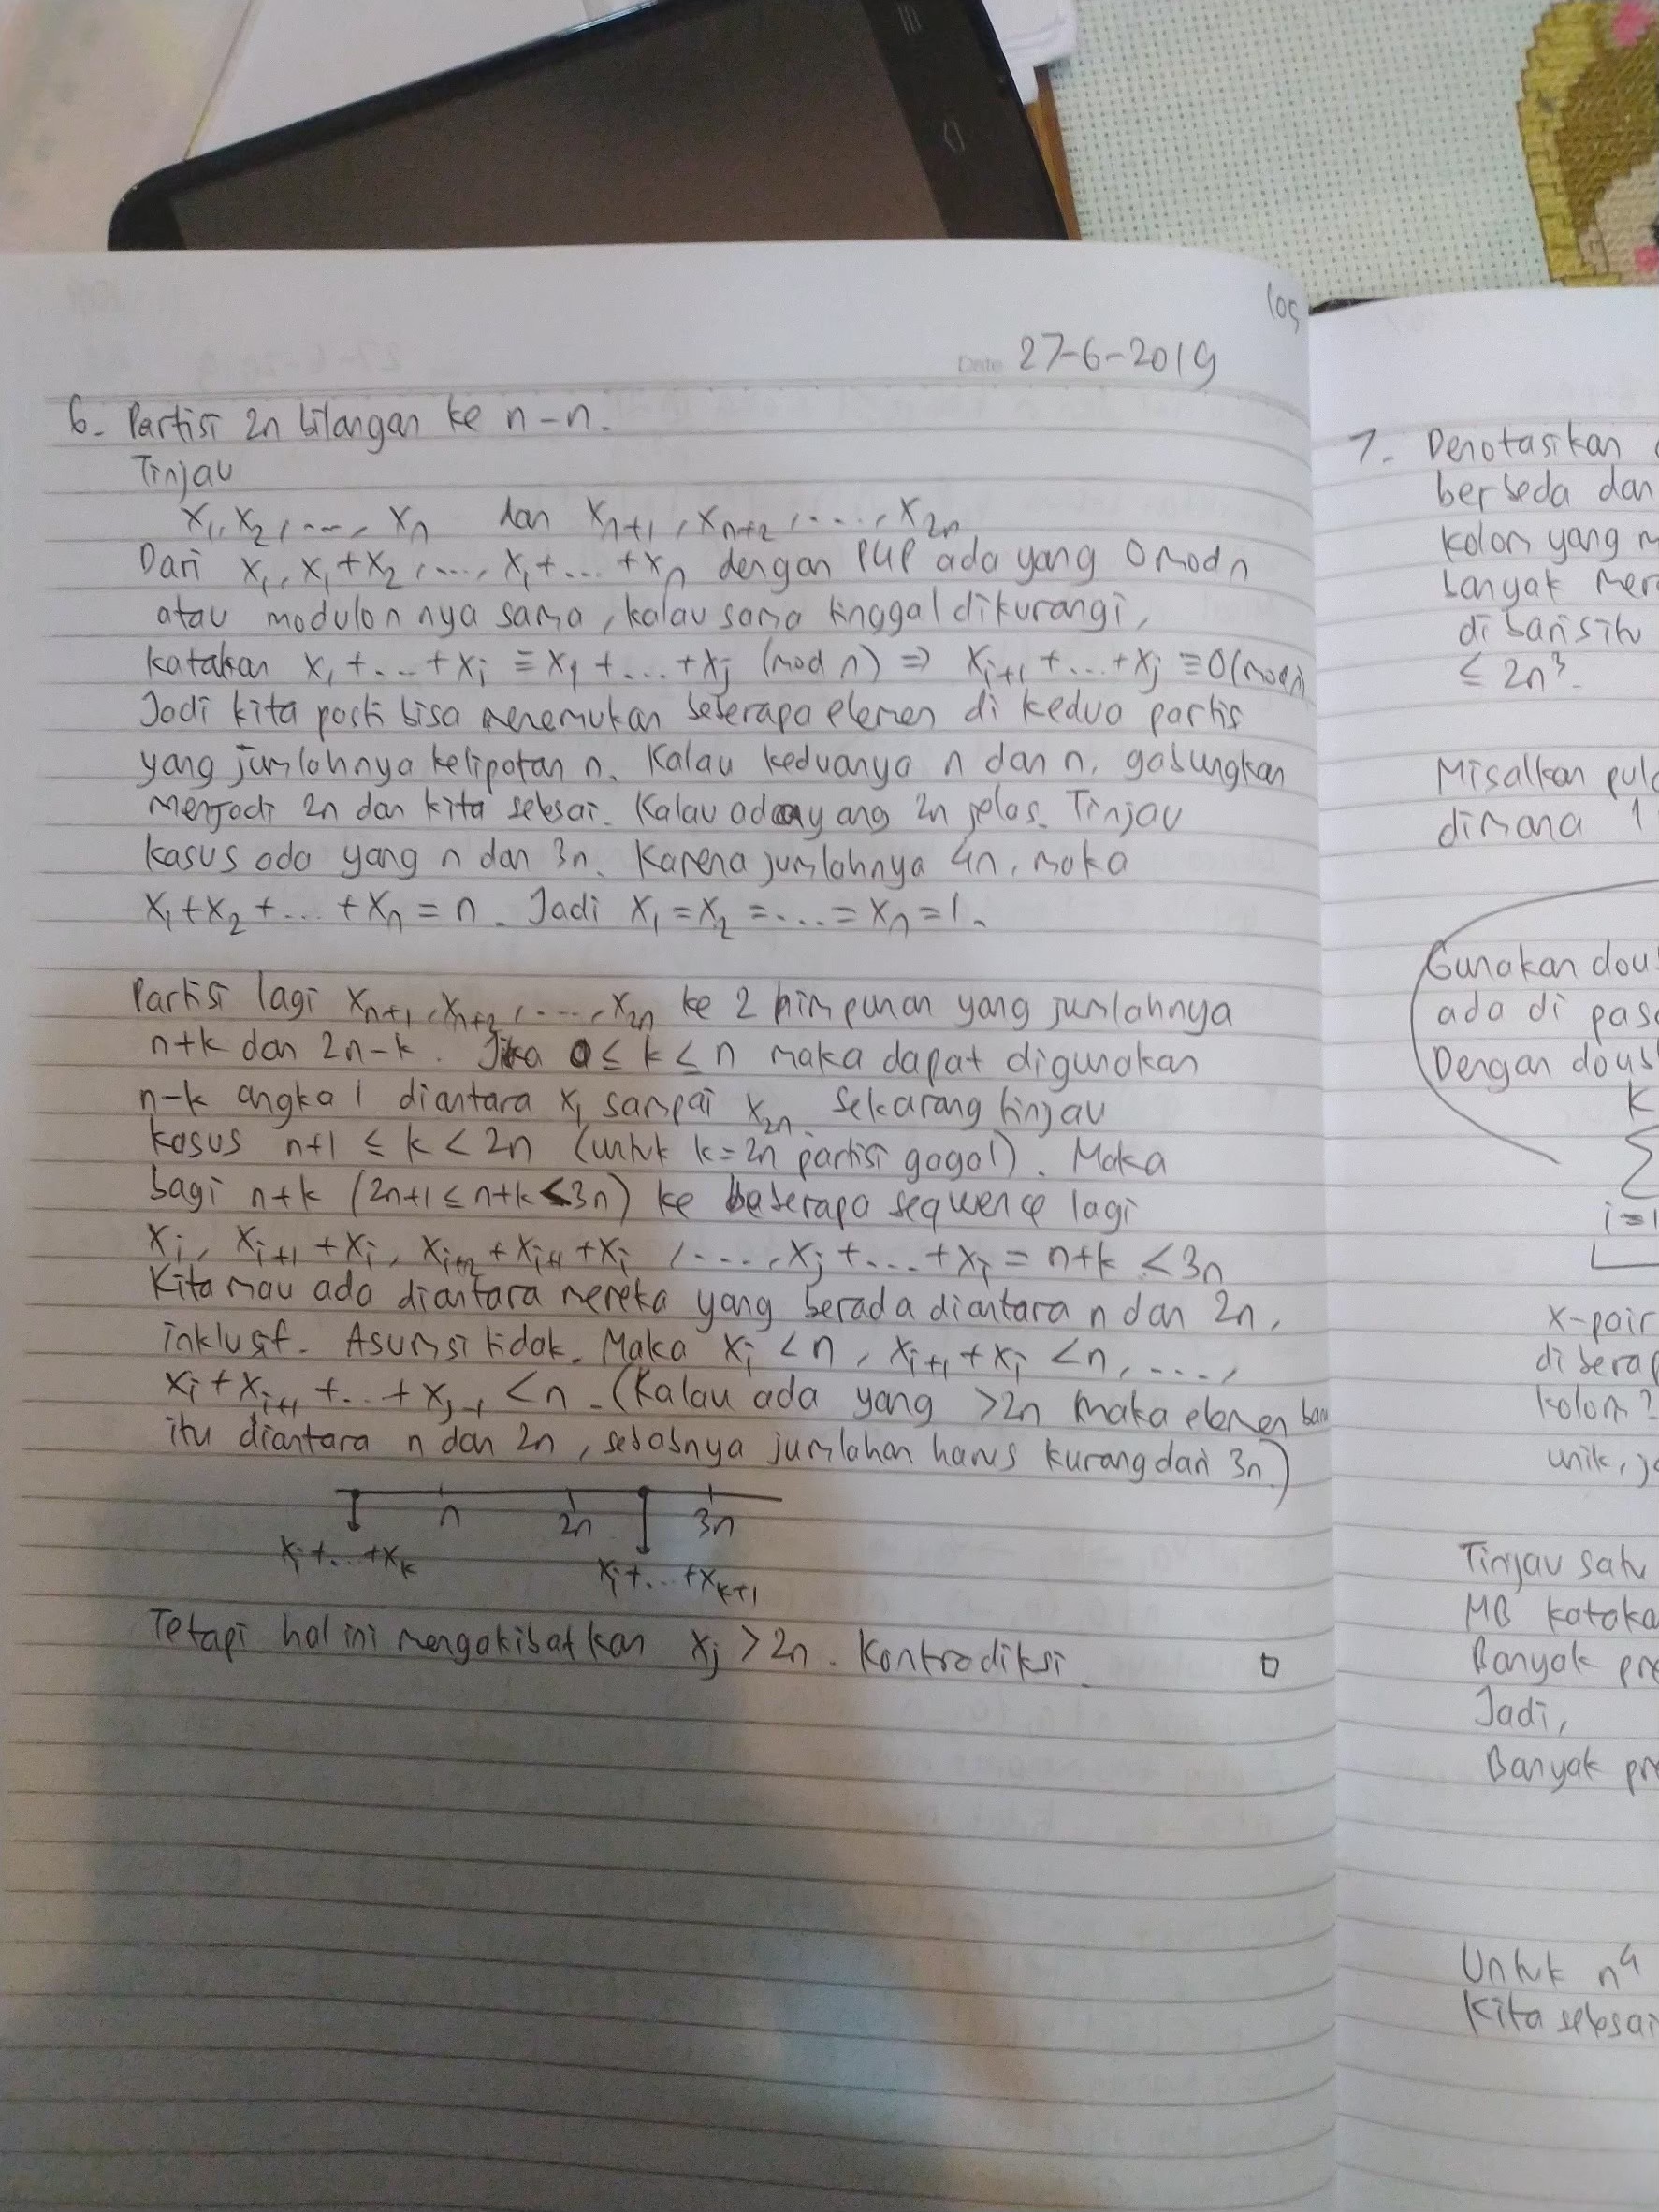 105
Date 27-6-2019
6. Partisi 2n bilangan ke n-n.
Tinjau
x₁, x₂, ..., xₙ dan xₙ₊₁, xₙ₊₂, ..., x₂ₙ
Dari x₁, x₁+x₂, ..., x₁+...+xₙ dengan PHP ada yang 0 mod n
atau modulo n nya sama, kalau sama tinggal dikurangi,
katakan x₁+...+xᵢ ≡ x₁+...+xⱼ (mod n) ⇒ xᵢ₊₁+...+xⱼ ≡ 0 (mod n)
Jadi kita pasti bisa menemukan beberapa elemen di kedua partisi
yang jumlahnya kelipatan n. Kalau keduanya n dan n, gabungkan
menjadi 2n dan kita selesai. Kalau ada yang 2n jelas. Tinjau
kasus ada yang n dan 3n. Karena jumlahnya 4n, maka
x₁+x₂+...+xₙ = n. Jadi x₁=x₂=...=xₙ=1.
Partisi lagi xₙ₊₁, xₙ₊₂, ..., x₂ₙ ke 2 himpunan yang jumlahnya
n+k dan 2n-k. Jika 0 ≤ k ≤ n maka dapat digunakan
n-k angka 1 diantara x₁ sampai x₂ₙ. Sekarang tinjau
kasus n+1 ≤ k < 2n (untuk k=2n partisi gagal). Maka
bagi n+k (2n+1 ≤ n+k ≤ 3n) ke beberapa sequence lagi
xᵢ, xᵢ₊₁+xᵢ, xᵢ₊₂+xᵢ₊₁+xᵢ, ..., xⱼ+...+xᵢ = n+k < 3n
Kita mau ada diantara mereka yang berada diantara n dan 2n,
inklusif. Asumsi tidak. Maka xᵢ < n, xᵢ₊₁+xᵢ < n, ...,
xᵢ+xᵢ₊₁+...+xⱼ₋₁ < n. (Kalau ada yang >2n maka elemen baru
itu diantara n dan 2n, sebabnya jumlahan harus kurang dari 3n)
n 2n 3n
xᵢ+...+xₖ xᵢ+...+xₖ₊₁
Tetapi hal ini mengakibatkan xⱼ > 2n. Kontradiksi. □
7. Denotasikan
berbeda dan
kolom yang
banyak
di baris itu
≤ 2n³.
Misalkan
dimana 1
Gunakan
ada di
Dengan
k
Σ
i=1
x-pair
kolom?
unik,
Tinjau satu
MB
Banyak
Jadi,
Banyak
Untuk n⁴
Kita selesai